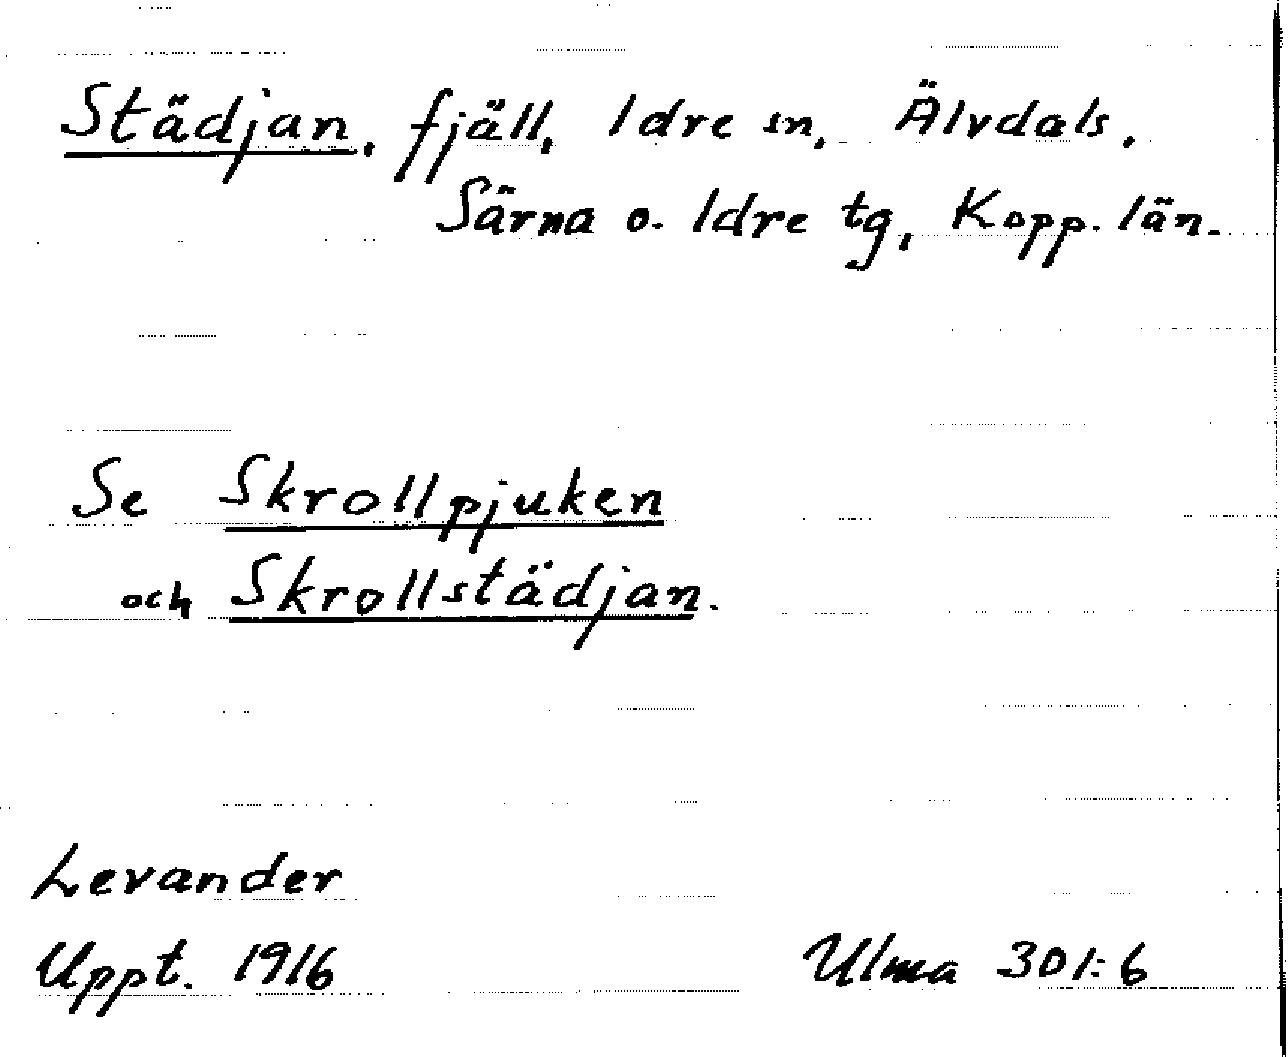 Städjan, fjäll, Idre sn, Älvdals,
Särna o. Idre tg, Kopp. län.
Se Skrollpjuken
och Skrollstädjan.
Levander
Uppt. 1916 Ulma 301:6